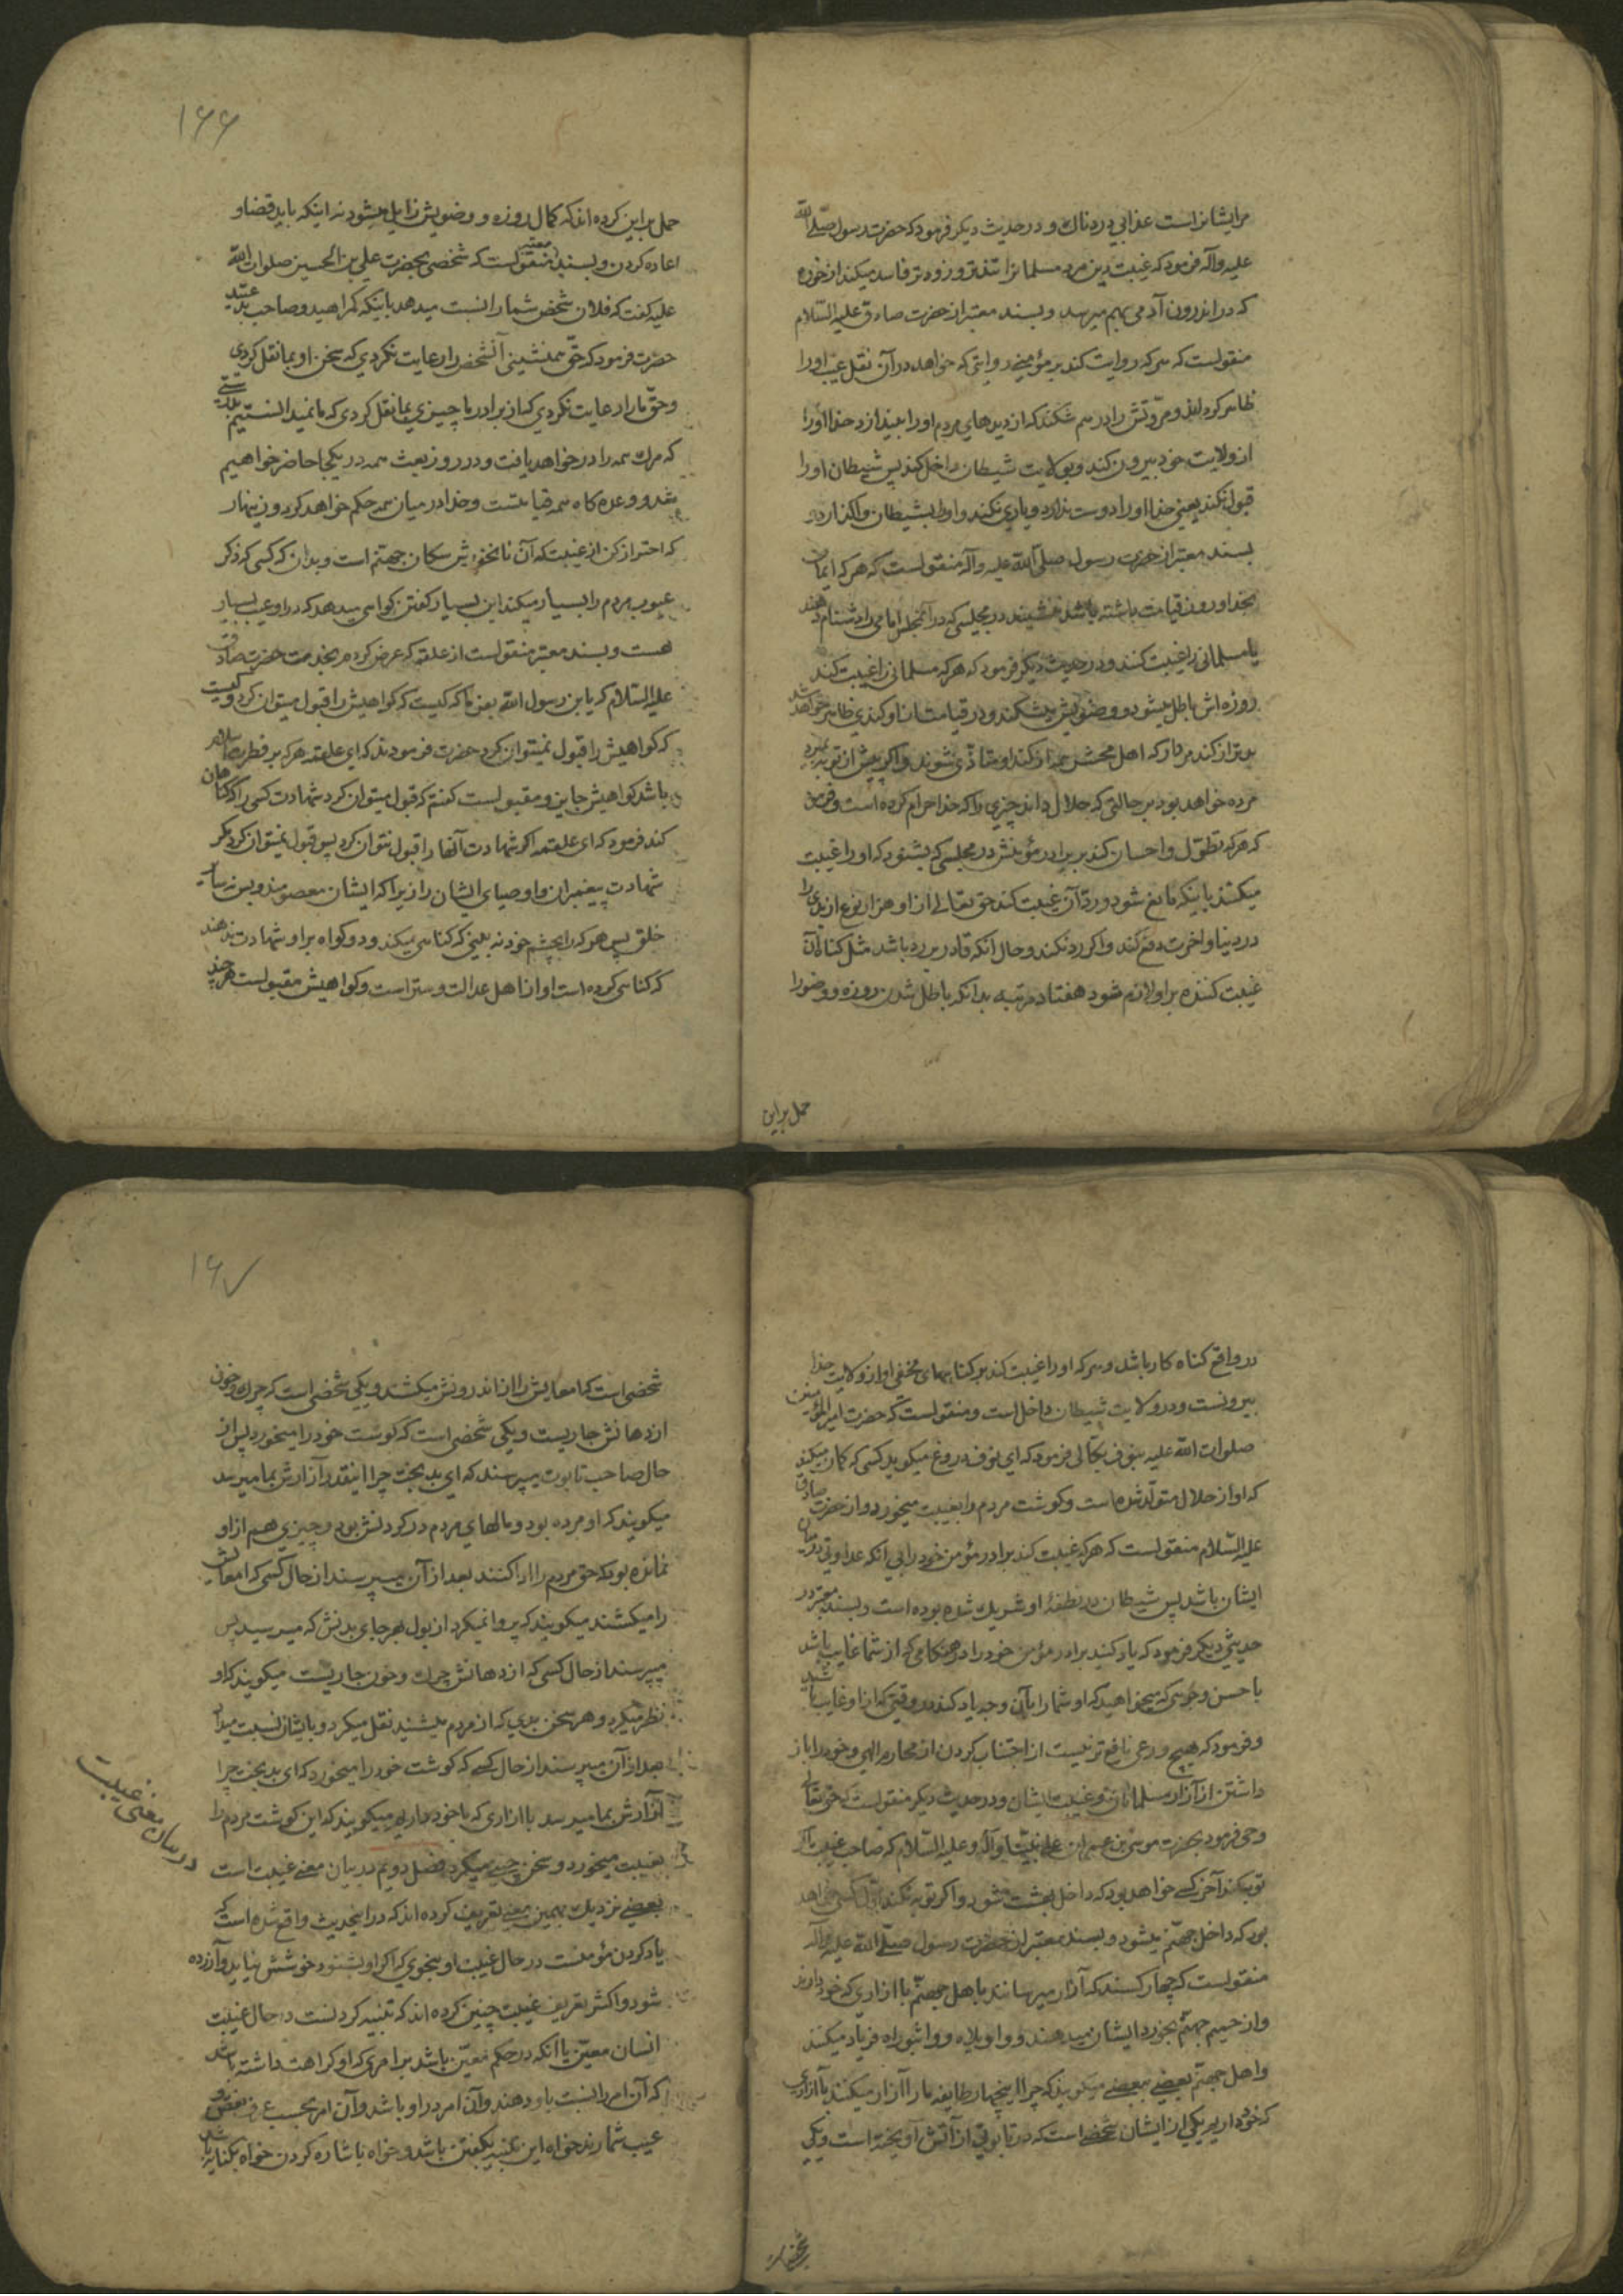 مر ایشانراست عذابی دردناک و در حدیث دیکر فرمود که حضرت رسول صلّی الله
علیه وآله فرمود که غیبت دین مرد مسلمانرا تندتر و زودتر فاسد میکند از خوره
که در اندرون آدمی بهم میرسد و بسند معتبر از حضرت صادق علیه السّلام
منقولست که هر که روایت کند بر مؤمنی روایتی که خواهد در آن نقل عیب او را
ظاهر کرداند و مروّتش را در هم شکند که از دیدهای مردم او را بیندازد خدا او را
از ولایت خود بیرون کند و بولایت شیطان داخل کند پس شیطان او را
قبول نکند یعنی خدا او را دوست ندارد و یاری نکند و او را بشیطان واکذارد و
بسند معتبر از حضرت رسول صلّی الله علیه وآله منقولست که هر که ایمان
بخدا و روز قیامت داشته باشد ننشیند در مجلسی که در آنمجلس امامی را دشنام دهند
یا مسلمانی را غیبت کنند و در حدیث دیکر فرمود که هر که مسلمانی را غیبت کند
روزه اش باطل میشود و وضویش میشکند و در قیامت از او کندی ظاهر خواهد شد
بدتر از کند مردار که اهل محشر همه از کند او متاذّی شوند و اکر پیش از توبه بمیرد
مرده خواهد بود بر حالتی که حلال داند چیزی را که خدا حرام کرده است و فرمود
که هر که تطوّل و احسان کند بر برادر مؤمنش در مجلسی که بشنود که او را غیبت
میکنند باینکه مانع شود و ردّ آن غیبت کند حق تعالی از او هزار نوع از بدی را
در دنیا و اخرت دفع کند و اکر رد نکند و حال آنکه قادر بر رد باشد مثل کناه آن
غیبت کننده بر او لازم شود هفتاد مرتبه بدانکه باطل شدن روزه و وضو را
حمل بر این
۱۶۶
حمل بر این کرده اند که کمال روزه و وضویش زایل میشود نه اینکه باید قضا و
اعاده کردن و بسند معتبر منقولست که شخصی بحضرت علی بن الحسین صلوات الله
علیه کفت که فلان شخص شما را نسبت میدهد باینکه کمراهید و صاحب بدعتید
حضرت فرمود که حقّ همنشینی آنشخص را رعایت نکردی که سخن او بما نقل کردی
و حقّ ما را رعایت نکردی که از برادر ما چیزی بما نقل کردی که ما نمیدانستیم بدرستی
که مرک همه را در خواهد یافت و در روز بعث همه در یکجا حاضر خواهیم
شد و وعده کاه همه قیامتست و خدا در میان همه حکم خواهد کرد و زینهار
که احتراز کن از غیبت که آن نانخورش سکان جهنّم است و بدان که کسی که ذکر
عیوب مردم را بسیار میکند این بسیار کفتن کواهی میدهد که در او عیب بسیار
هست و بسند معتبر منقولست از علقمه که عرض کردم بخدمت حضرت صادق
علیه السّلام که یابن رسول الله بفرما که کیست که کواهیش را قبول میتوان کرد و کیست
که کواهیش را قبول نمیتوان کرد حضرت فرمودند که ای علقمه هر که بر فطرت اسلام
باشد کواهیش جایز و مقبولست کفتم که قبول میتوان کرد شهادت کسی را که کناهان
کند فرمود که ای علقمه اکر شهادت آنها را قبول نتوان کرد پس قبول نمیتوان کرد مکر
شهادت پیغمبران و اوصیای ایشان را زیرا که ایشان معصومند و بس نه سایر
خلق پس هر که را بچشم خود نه بینی که کناهی میکند و دو کواه بر او شهادت ندهند
که کناهی کرده است او از اهل عدالت و ستر است و کواهیش مقبولست هر چند
در واقع کناه کار باشد و هر که او را غیبت کند بر کناههای مخفی او از ولایت خدا
بیرونست و در ولایت شیطان داخل است و منقولست که حضرت امیر المؤمنین
صلوات الله علیه بنوف بکالی فرمود که ای نوف دروغ میکوید کسی که کمان میکند
که او از حلال متولّد شده است و کوشت مردم را بغیبت میخورد و از حضرت صادق
علیه السّلام منقولست که هر که غیبت کند برادر مؤمن خود را بی آنکه عداوتی در میان
ایشان باشد پس شیطان در نطفهٔ او شریک شده بوده است و بسند معتبر در
حدیثی دیکر فرمود که یاد کنید برادر مؤمن خود را در هنکامی که از شما غایب باشد
باحسن وجوهی که میخواهید که او شما را بآن وجه یاد کند در وقتی که از او غایب باشید
و فرمود که هیچ ورعی نافع تر نیست از اجتناب کردن از محارم الهی و خود را باز
داشتن از آزار مسلمانان و غیبت ایشان و در حدیث دیکر منقولست که حق تعالی
وحی فرمود بحضرت موسی بن عمران علی نبیّنا وآله وعلیه السّلام که صاحب غیبت اکر
توبه کند آخر کسی خواهد بود که داخل بهشت شود و اکر توبه نکند اوّل کسی خواهد
بود که داخل جهنّم میشود و بسند معتبر از حضرت رسول صلّی الله علیه وآله
منقولست که چهار کسند که آزار میرسانند باهل جهنّم با ازاری که خود دارند
و از حمیم جهنّم بخورد ایشان میدهند و واویلاه و واثبوراه فریاد میکنند
و اهل جهنّم بعضی ببعضی میکویند که چرا اینچهار طایفه ما را آزار میکنند با آزاری
که خود داریم یکی از ایشان شخصی است که در تابوتی از آتش آویخته است و یکی
شخصیست
۱۶۷
شخصی است که امعایش را از اندرونش میکشند و یکی شخصی است که چرک و خون
از دهانش جاریست و یکی شخصی است که کوشت خود را میخورد پس از
حال صاحب تابوت میپرسند که ای بدبخت چرا اینقدر آزارش بما میرسد
میکویند که او مرده بود و مالهای مردم در کردنش بود و چیزی هم از او
نمانده بود که حق مردم را ادا کنند بعد از آن میپرسند از حال کسی که امعایش
را میکشند میکویند که پروا نمیکرد از بول بهر جای بدنش که میرسید پس
میپرسند از حال کسی که از دهانش چرک و خون جاریست میکویند که او
نظر میکرد و هر سخن بدی که از مردم میشنید نقل میکرد و بایشان نسبت میداد
بعد از آن میپرسند از حال کسی که کوشت خود را میخورد که ای بدبخت چرا
آزارش بما میرسد با ازاری که با خود داریم میکویند که این کوشت مردم را
بغیبت میخورد و سخن چینی میکرد فصل دویم در بیان معنی غیبت است
بعضی نزدیک بهمین معنی تعریف کرده اند که در اینحدیث واقع شده است که
یاد کردن مؤمنست در حال غیبت او بنحوی که اکر او بشنود خوشش نیاید و آزرده
شود و اکثر تعریف غیبت چنین کرده اند که تنبیه کردنست در حال غیبت
انسان معیّن یا آنکه در حکم معیّن باشد بر امری که او کراهت داشته باشد
که آن امر را نسبت باو دهند و آن امر در او باشد و آن امر بحسب عرف نقص و
عیب شمارند خواه این تنبیه بکفتن باشد و خواه باشاره کردن خواه بکنایه باشد
در بیان معنی غیبت